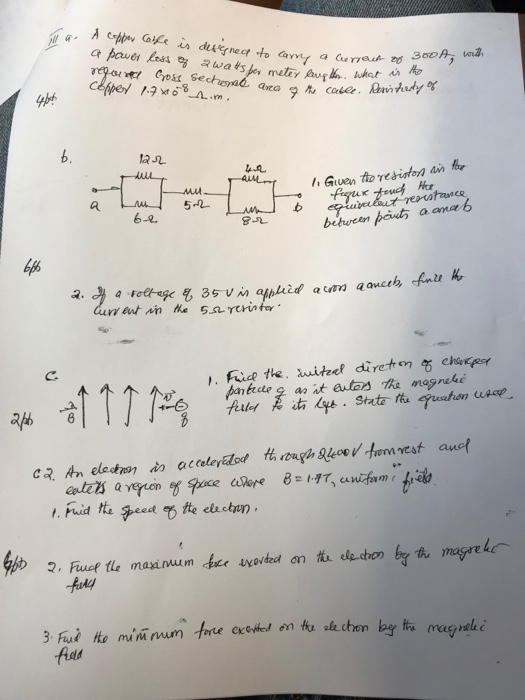 III a. A copper cable is designed to carry a current of 300A, with
a power loss of 2 watts per meter length. What is the
required Cross sectional area of the cable. Resistivity of
copper 1.7 x 10^-8 Ω.m.
4pt
b.
12Ω
4Ω
a
5Ω
b
6Ω
8Ω
1. Given the resistors in the
figure find the
equivalent resistance
between points a and b
6pts
2. If a voltage of 35 V is applied across a and b, find the
Current in the 5Ω resistor.
C
B
v
q
2pts
1. Find the initial direction of charged
particle q as it enters the magnetic
field to its left. State the equation used.
C2. An electron is accelerated through 2400 V from rest and
enters a region of space where B = 1.7T, uniform field
1. Find the speed of the electron.
2. Find the maximum force exerted on the electron by the magnetic
field
3. Find the minimum force exerted on the electron by the magnetic
field